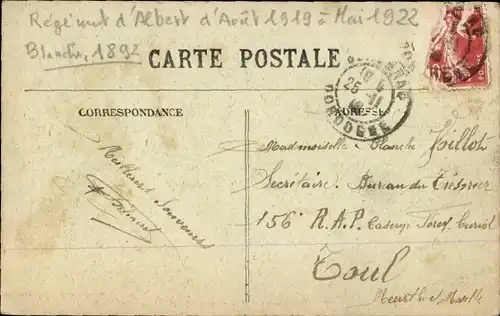 Régiment d'Albert d'Août 1919 à Mai 1922
Blanche, 1892
CARTE POSTALE
CORRESPONDANCE
ADRESSE
DORDOGNE
25
Meilleurs Souvenirs
Mademoiselle Blanche
Secrétaire. Bureau du Trésorier
156e R.A.P. Caserne
Toul
Meurthe Moselle